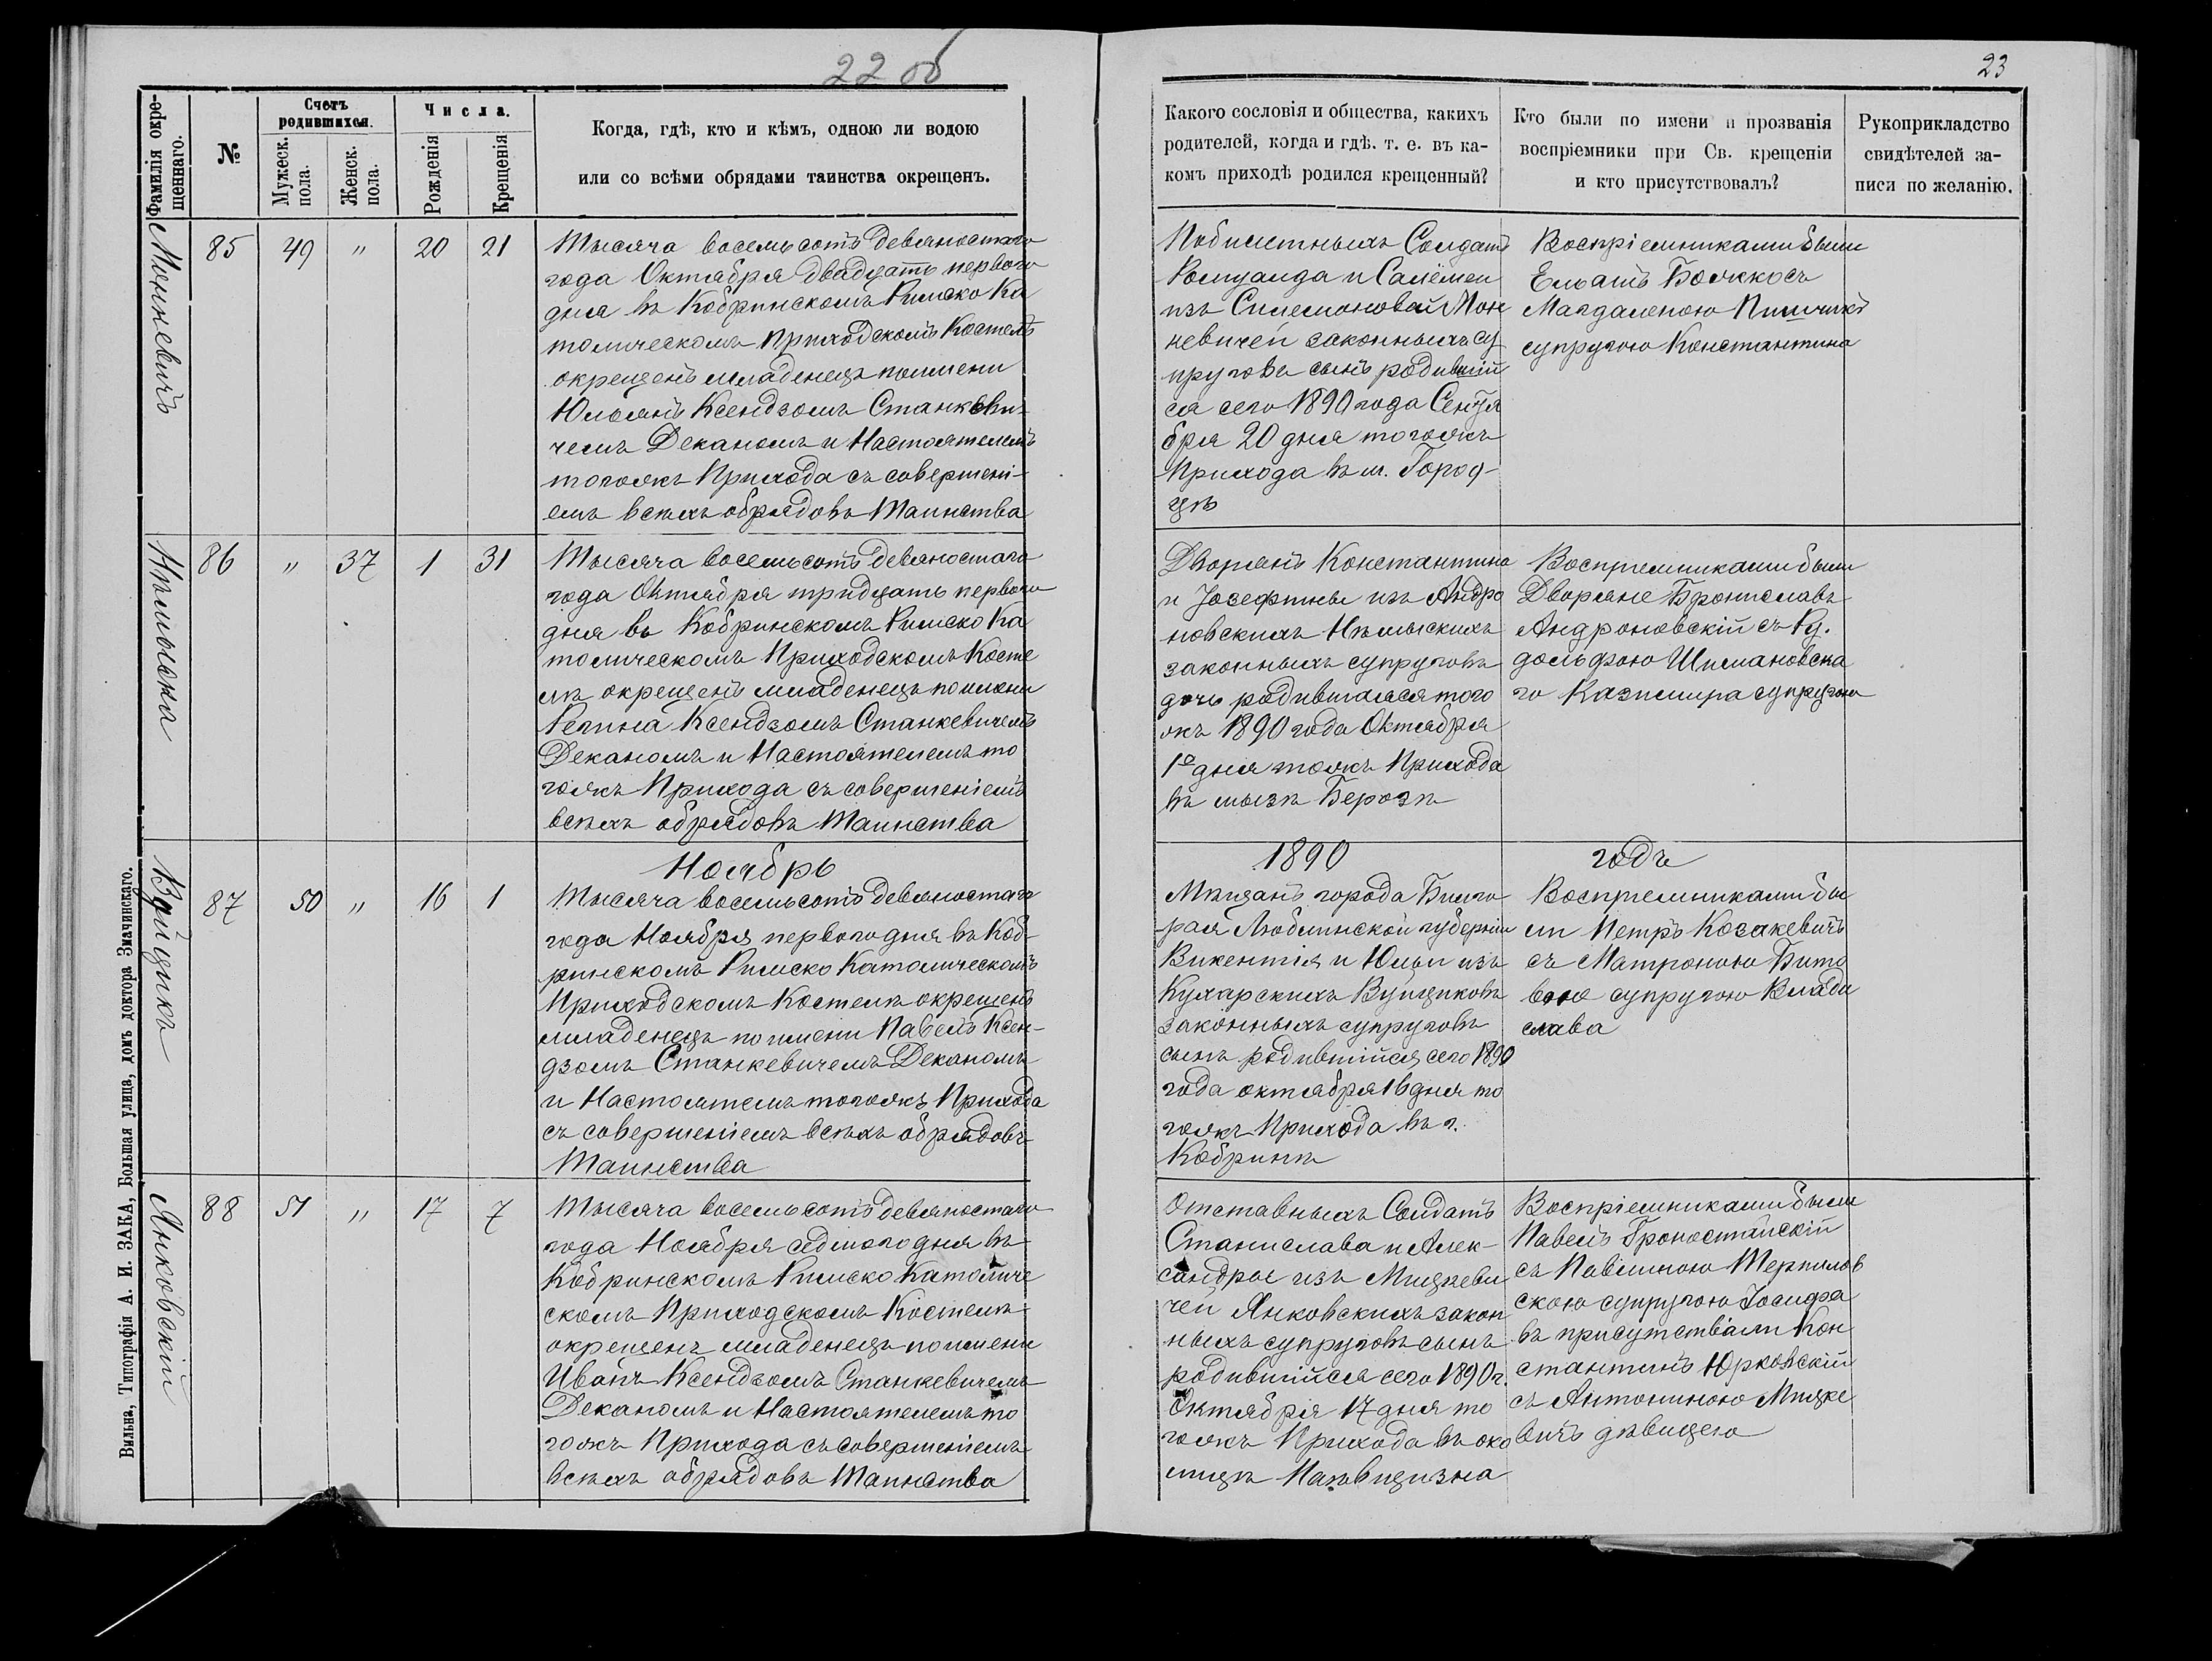 22 об
23
Фамилія окре-
щеннаго.
№
Счетъ
родившихся.
Мужеск.
пола.
Женск.
пола.
Числа.
Рожденія
Крещенія
Когда, гдѣ, кто и кѣмъ, одною ли водою
или со всѣми обрядами таинства окрещенъ.
Какого сословія и общества, какихъ
родителей, когда и гдѣ. т. е. въ ка-
комъ приходѣ родился крещенный?
Кто были по имени и прозванія
воспріемники при Св. крещеніи
и кто присутствовалъ?
Рукоприкладство
свидѣтелей за-
писи по желанію.
85 49 " 20 21
Тысяча восемьсотъ девяностаго
года Октября двадцать перваго
дня въ Кобринскомъ Римско Ка
толическомъ Приходскомъ Костелѣ
окрещенъ младенецъ по имени
Юльянъ Ксендзомъ Станкеви
чемъ Деканомъ и Настоятелемъ
тогожъ Прихода съ совершені-
емъ всѣхъ обрядовъ Таинства
Побилетныхъ Солдатъ
Ромуалда и Салёмеи
изъ
невичей законныхъ су
пруговъ сынъ родивший
ся сего 1890 года Сентя
бря 20 дня тогожъ
Прихода въ м. Город-
цѣ
Воспріемниками были
Магдаленою
супругою Константина
Нѣмыска
86 " 37 1 31
Тысяча восемьсотъ девяностаго
года Октября тридцать перваго
дня въ Кобринскомъ Римско Ка
толическомъ Приходскомъ Косте
лѣ окрещенъ младенецъ по имени
Регина Ксендзомъ Станкевичемъ
Деканомъ и Настоятелемъ то
гожъ Прихода съ совершеніемъ
всѣхъ обрядовъ Таинства
Дворянъ Константина
и Іозефины изъ Андро
новскихъ Нѣмыскихъ
законныхъ супруговъ
дочь родившаяся того
жъ 1890 года Октября
1го дня тожъ Прихода
въ мызѣ Березѣ
Воспремниками были
Дворяне Брониславъ
Андроновскій съ Ру.
дольфою Шимановска
го Казимира супругою
Ноябрь
1890 годъ
Вуйцикъ
87 50 " 16 1
Тысяча восемьсотъ девяностаго
года Ноября перваго дня въ Коб-
ринскомъ Римско Католическомъ
Приходскомъ Костелѣ окрещенъ
младенецъ по имени Павелъ Ксен-
дзомъ Станкевичемъ Деканомъ
и Настоятелемъ тогожъ Прихода
съ совершеніемъ всѣхъ обрядовъ
Таинства
Мѣщанъ города Билго
рая Люблинской губерніи
Викентія и Юльи изъ
Кухарскихъ Вуйциковъ
законныхъ супруговъ
сынъ родившійся сего 1890
года октября 16 дня то
гожъ Прихода въ г.
Кобринѣ
Воспремниками бы
ли Петръ Козакевичъ
съ Матроною Бито
вою супругою Влади
слава
Янковскій
88 51 " 17 7
Тысяча восемьсотъ девяностаго
года Ноября седмого дня въ
Кобринскомъ Римско Католиче
скомъ Приходскомъ Костелѣ
окрещенъ младенецъ по имени
Иванъ Ксендзомъ Станкевичемъ
Деканомъ и Настоятелемъ то
гожъ Прихода съ совершеніемъ
всѣхъ обрядовъ Таинства
Отставныхъ Солдатъ
Станислава и Алек-
сандры изъ Мицкеви
чей Янковскихъ закон
ныхъ супруговъ сынъ
родившійся сего 1890 г.
Октября 17 дня то
гожъ Прихода въ око
лицѣ
Воспріемниками были
Павелъ Гроностайскій
съ Павлиною Терпилов
скою супругою Іосифа
въ присутствіи Кон
стантинъ Юрковскій
съ Антониною Мицке
вичъ дѣвицею
Вильна, Типографія А. И. ЗАКА, Большая улица, домъ доктора Змачинскаго.